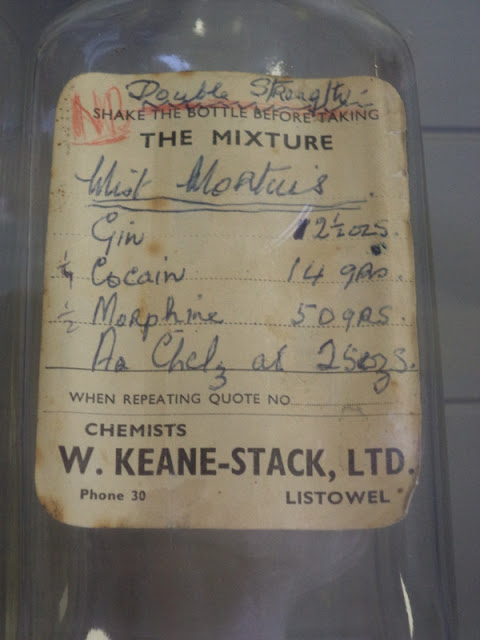 ND
Double Strength
SHAKE THE BOTTLE BEFORE TAKING
THE MIXTURE
Mist Mortuis
Gin 12½ ozs.
¼ Cocain 14 grs.
½ Morphine 50 grs.
Aq Chlf ad 25 ozs.
WHEN REPEATING QUOTE NO
CHEMISTS
W. KEANE-STACK, LTD.
Phone 30 LISTOWEL